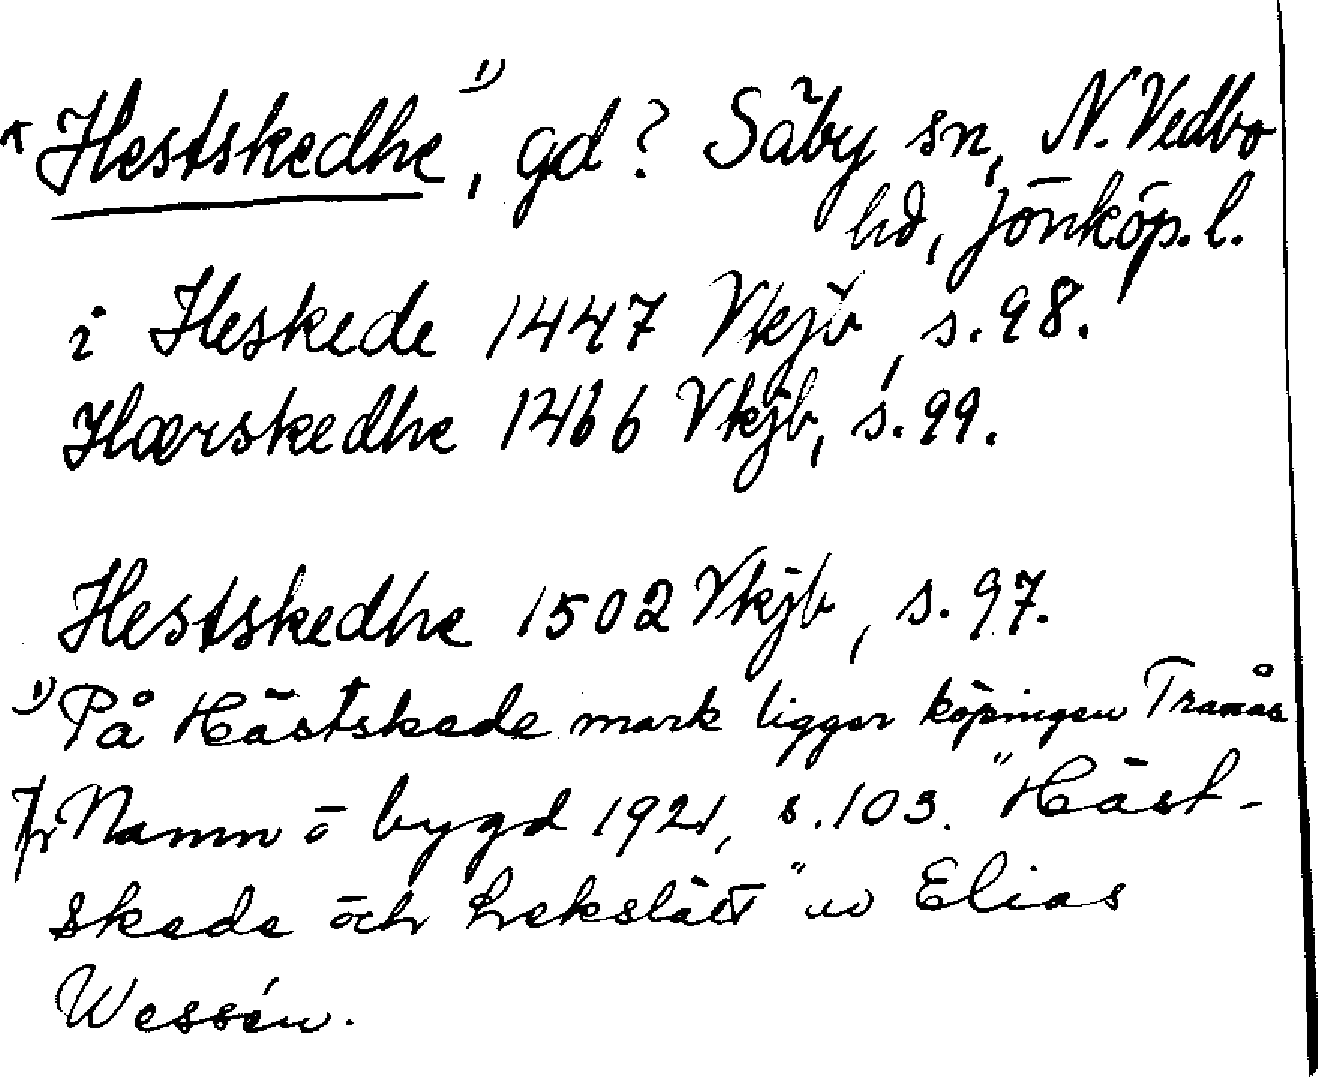 *Hestskedhe¹⁾, gd? Säby sn, N. Vedbo
hd, Jönköp. l.
i Heskede 1447 Vkjb, s. 98.
Hærskedhe 1466 Vkjb, s. 99.
Hestskedhe 1502 Vkjb, s. 97.
¹⁾ På Hästskede mark ligger köpingen Tranås
Jfr Namn o bygd 1921, s. 103. "Häst-
skede och Lekslätt" av Elias
Wessén.